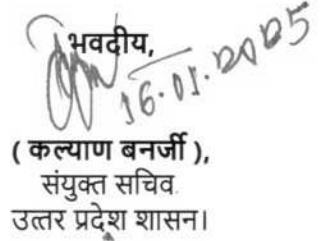 भवदीय,
16.01.2025
( कल्याण बनर्जी ),
संयुक्त सचिव.
उत्तर प्रदेश शासन।